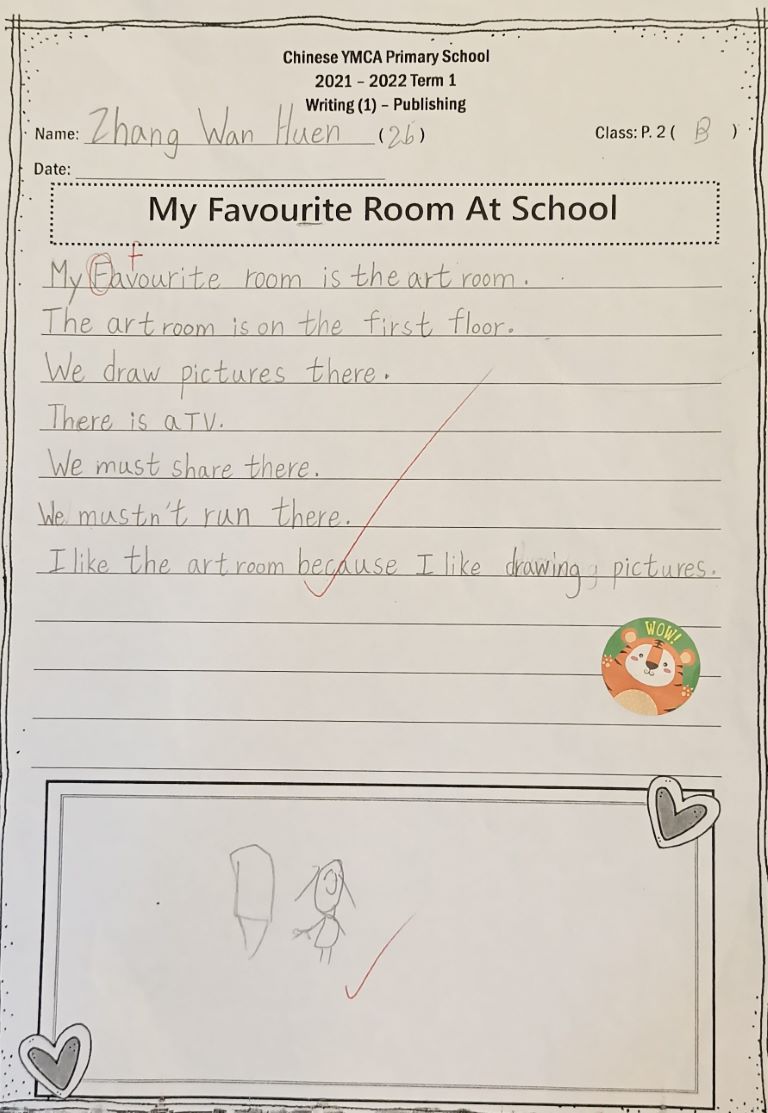 Chinese YMCA Primary School
2021 – 2022 Term 1
Writing (1) – Publishing
Name: Zhang Wan Huen (26) Class: P. 2 ( B )
Date:
My Favourite Room At School
f
My Favourite room is the art room.
The art room is on the first floor.
We draw pictures there.
There is a TV.
We must share there.
We mustn't run there.
I like the art room because I like drawing pictures.
WOW!